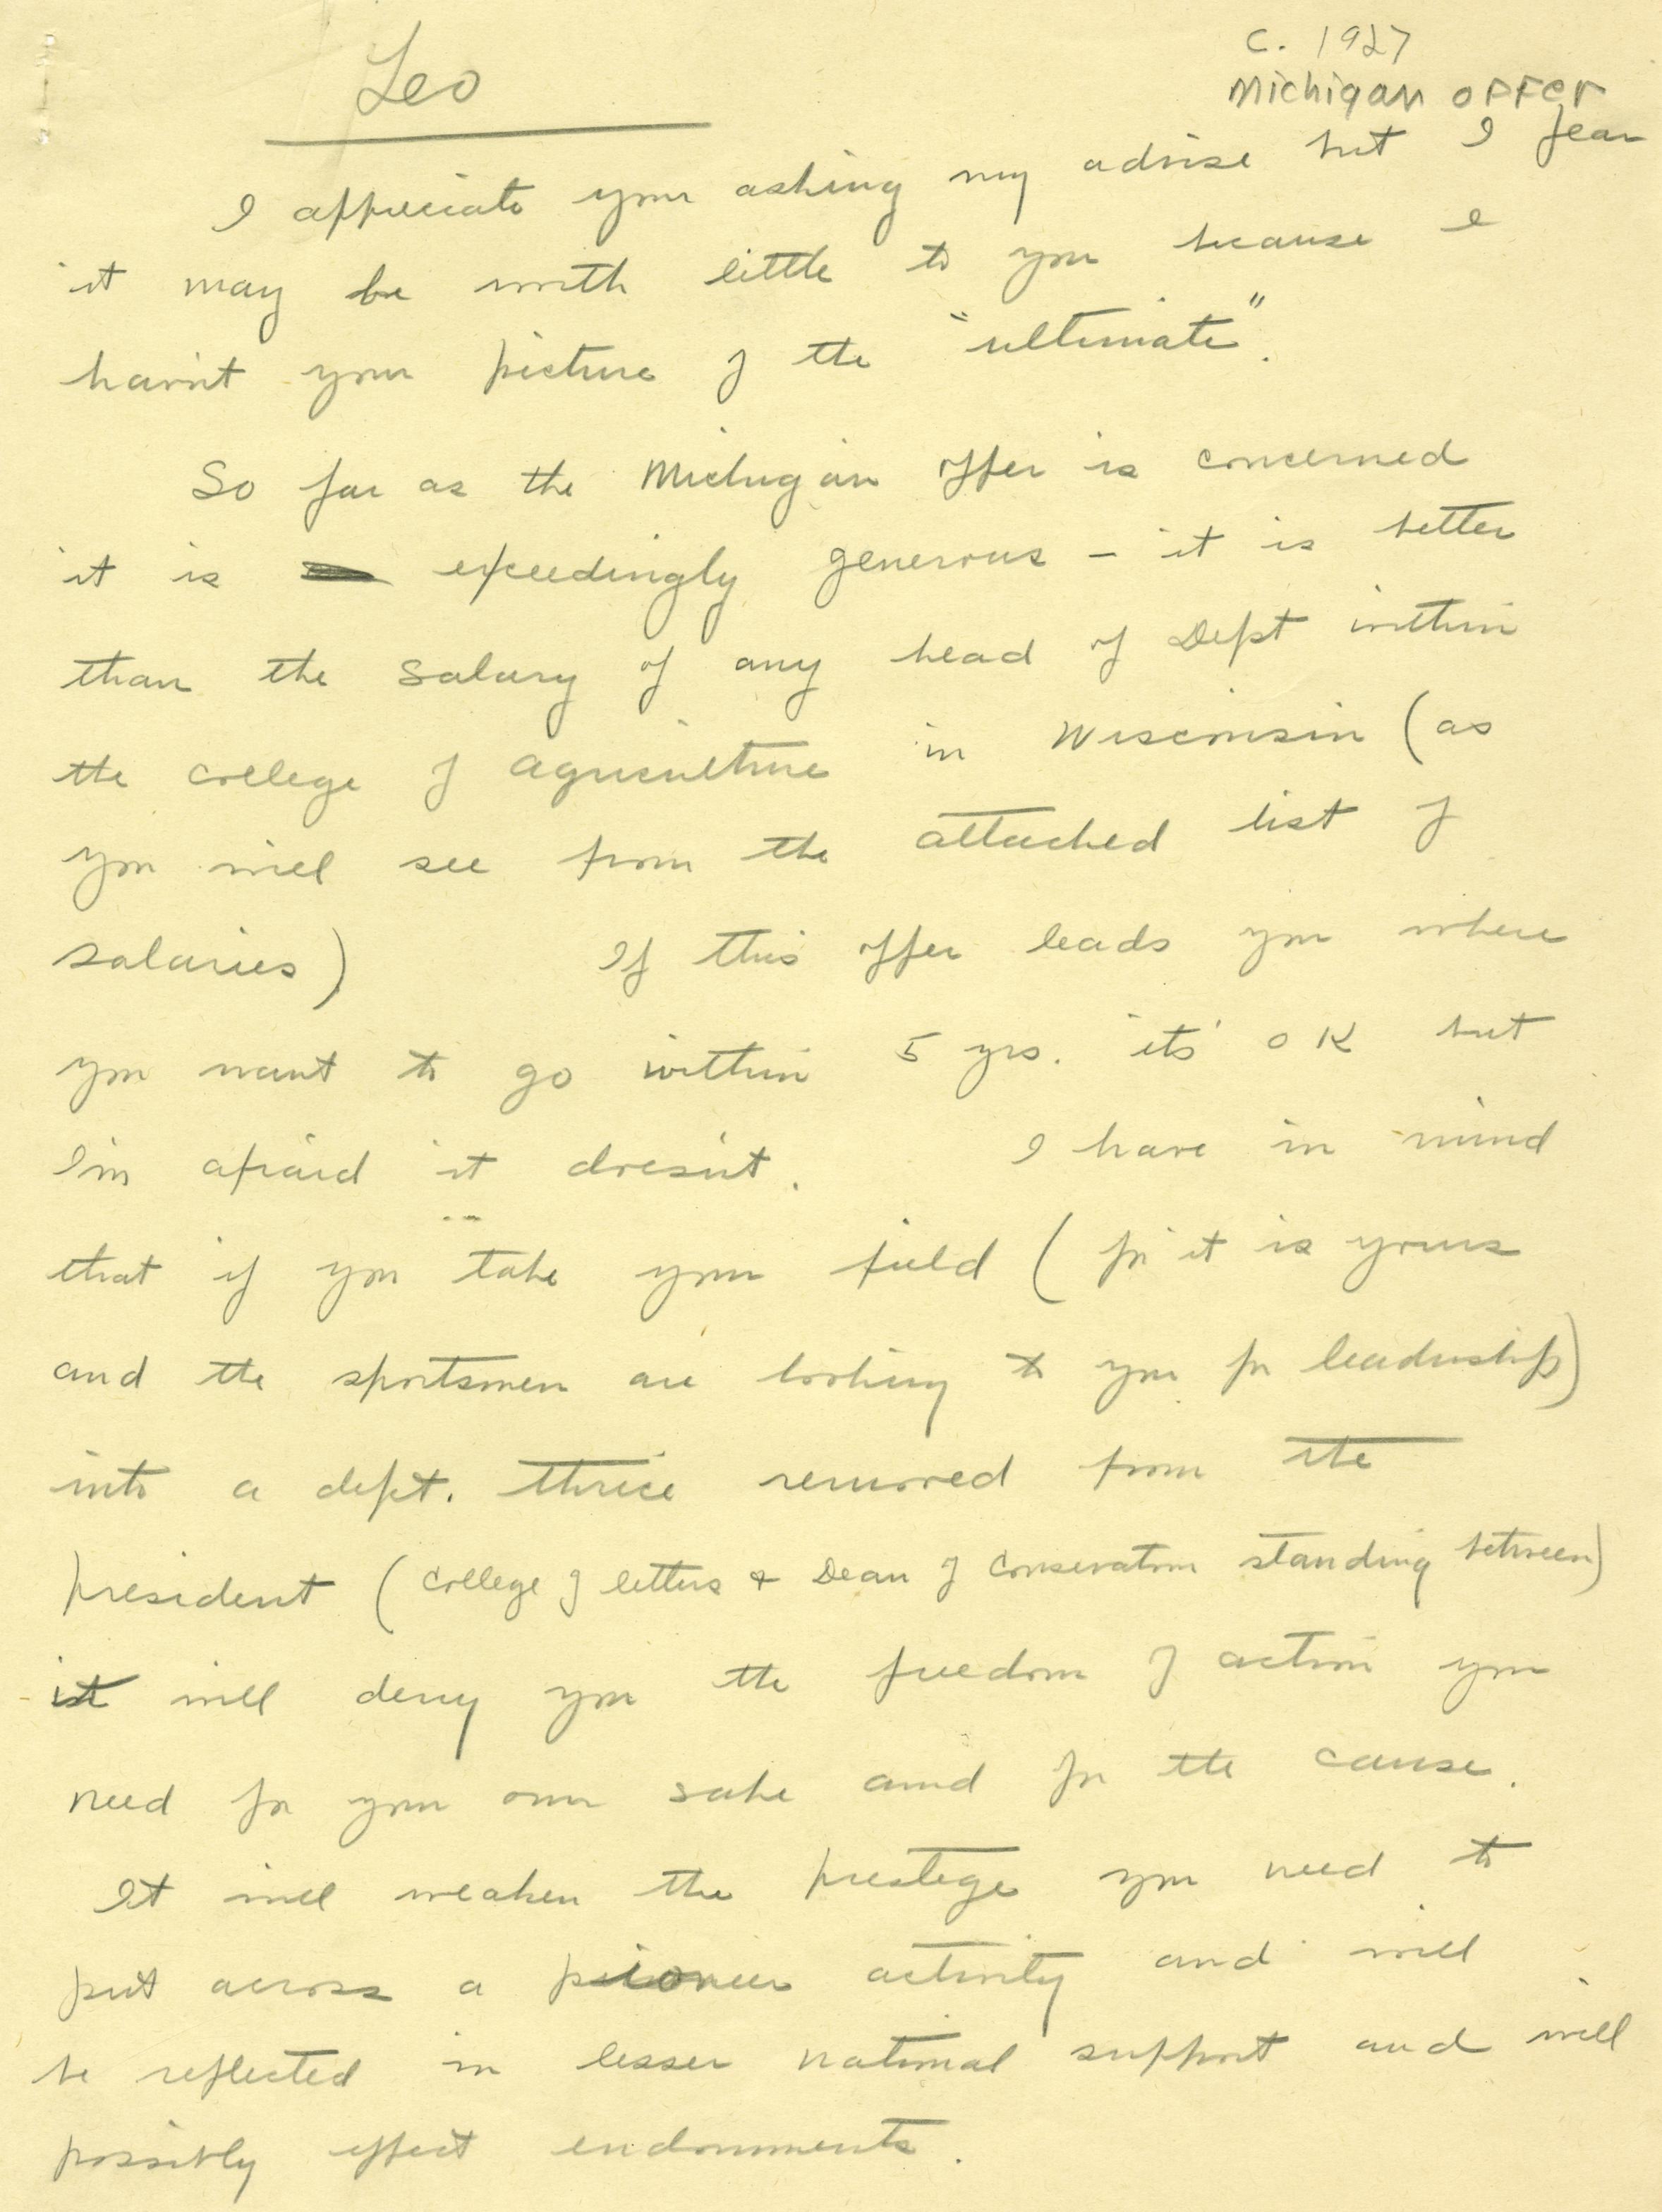 Leo
c. 1927
Michigan offer
I appreciate your asking my advise but I fear
it may be worth little to you because I
hav'nt your picture of the "ultimate".
So far as the Michigan offer is concerned
it is exceedingly generous - it is better
than the salary of any head of Dept within
the college of agriculture in Wisconsin (as
you will see from the attached list of
salaries) If this offer leads you where
you want to go within 5 yrs. its' OK but
I'm afraid it does'nt. I have in mind
that if you take your field (for it is yours
and the sportsmen are looking to you for leadership)
into a dept. thrice removed from the
president (College of letters & Dean of Conservation standing between)
it will deny you the freedom of action you
need for your own sake and for the cause.
It will weaken the prestege you need to
put across a pioneer activity and will
be reflected in lesser national support and will
possibly effect endowments.